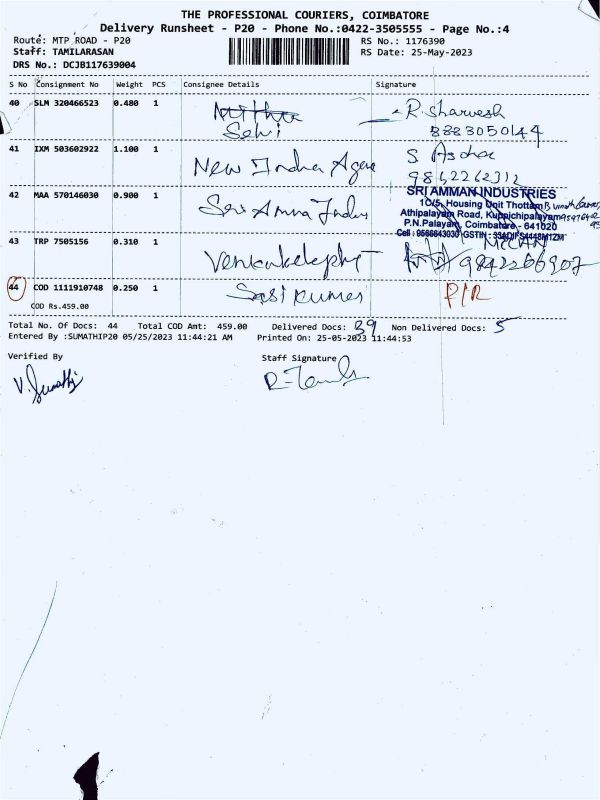 THE PROFESSIONAL COURIERS, COIMBATORE
Delivery Runsheet - P20 - Phone No.:0422-3505555 - Page No.:4
Route: MTP ROAD - P20
RS No.: 1176390
Staff: TAMILARASAN
RS Date: 25-May-2023
DRS No.: DCJB117639004
S No Consignment No Weight PCS Consignee Details Signature
40 SLM 320466523 0.480 1 Selvi R. Sharvesh
8883050144
41 IXM 503602922 1.100 1 New India S.
9862262312
42 MAA 570146030 0.900 1 Sri Amma
SRI AMMAN INDUSTRIES
10/5, Housing Unit Thottam
Athipalayam Road, Kuppichipalayam
P.N.Palayam, Coimbatore - 641020
Cell : GSTIN :
43 TRP 7505156 0.310 1 9842266907
44 COD 1111910748 0.250 1 Sasi kumar P/R
COD Rs.459.00
Total No. Of Docs: 44 Total COD Amt: 459.00 Delivered Docs: 39 Non Delivered Docs: 5
Entered By :SUMATHIP20 05/25/2023 11:44:21 AM Printed On: 25-05-2023 11:44:53
Verified By Staff Signature
V. Sumathi